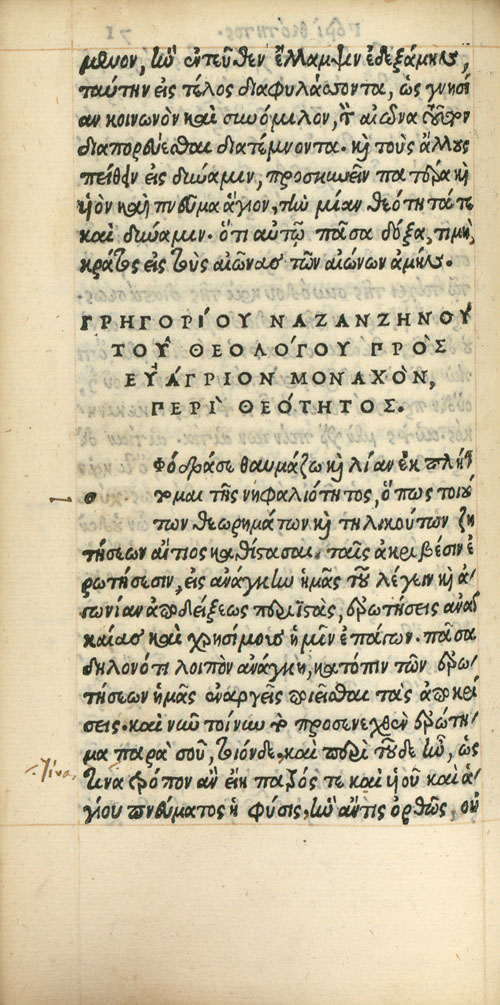 μενον, ἣν ἐντεῦθεν ἔλλαμψιν ἐδεξάμην,
ταύτην εἰς τέλος διαφυλάσσοντα, ὡς γνησί
αν κοινωνὸν καὶ συνόμιλον, τὸν αἰῶνα
διαπορεύεσθαι διατέμνοντα. καὶ τοὺς ἄλλους
πείθειν εἰς δύναμιν, προσκυνεῖν πατέρα καὶ
υἱὸν καὶ πνεῦμα ἅγιον, τὴν μίαν θεότητά τε
καὶ δύναμιν. ὅτι αὐτῷ πᾶσα δόξα, τιμὴ,
κράτος εἰς τοὺς αἰῶνας τῶν αἰώνων ἀμήν.
ΓΡΗΓΟΡΊΟΥ ΝΑΖΑΝΖΗΝΟΥ͂
ΤΟΥ͂ ΘΕΟΛΌΓΟΥ ΠΡῸΣ
ΕΥ̓ΆΓΡΙΟΝ ΜΟΝΑΧῸΝ,
ΠΕΡῚ ΘΕΌΤΗΤΟΣ.
φόδρα σε θαυμάζω καὶ λίαν ἐκπλήτ
σ τομαι τῆς νηφαλιότητος, ὅπως τοιού
των θεωρημάτων καὶ τηλικούτων ζη
τήσεων αἴτιος καθίστασαι, ταῖς ἀκριβέσιν ἐ
ρωτήσεσιν, εἰς ἀνάγκην ἡμᾶς τοῦ λέγειν καὶ ἀ
γωνίαν ἀποδείξεως περιϊστὰς, ἐρωτήσεις ἀναγ
καίας καὶ χρησίμους ἡμῖν ἐπάγων. πᾶσα
δηλονότι λοιπὸν ἀνάγκη, κατόπιν τῶν ἐρω
τήσεων ἡμᾶς ἐναργεῖς ποιεῖσθαι τὰς ἀποκρί
σεις. καὶ νῦν τοίνυν τὸ προσενεχθὲν ἐρώτη
μα παρὰ σοῦ, τοιόνδε. καὶ περὶ τοῦδε ἦν, ὡς
τίνα τίνα τρόπον ἂν εἴη πατρός τε καὶ υἱοῦ καὶ ἁ
γίου πνεύματος ἡ φύσις, ἣν ἄν τις ὀρθῶς, οὐ